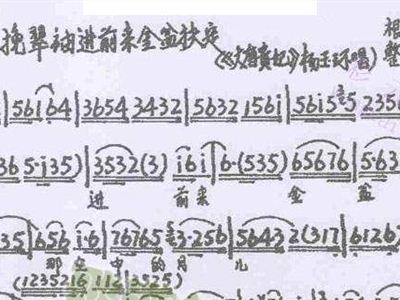 挽翠袖进前来金盆扶定
(《大唐贵妃》杨玉环唱)
根
整
56164|3654 3432|5632 156i|56i5 35 2356
36 5·i35)|3532(3) i6i|6·(535) 65676|5·63
进 前来 金 盆
35)|656 i·6|76765 3·256|5643 2(317|61267
那空中的月 儿
(1235216 112 3525)